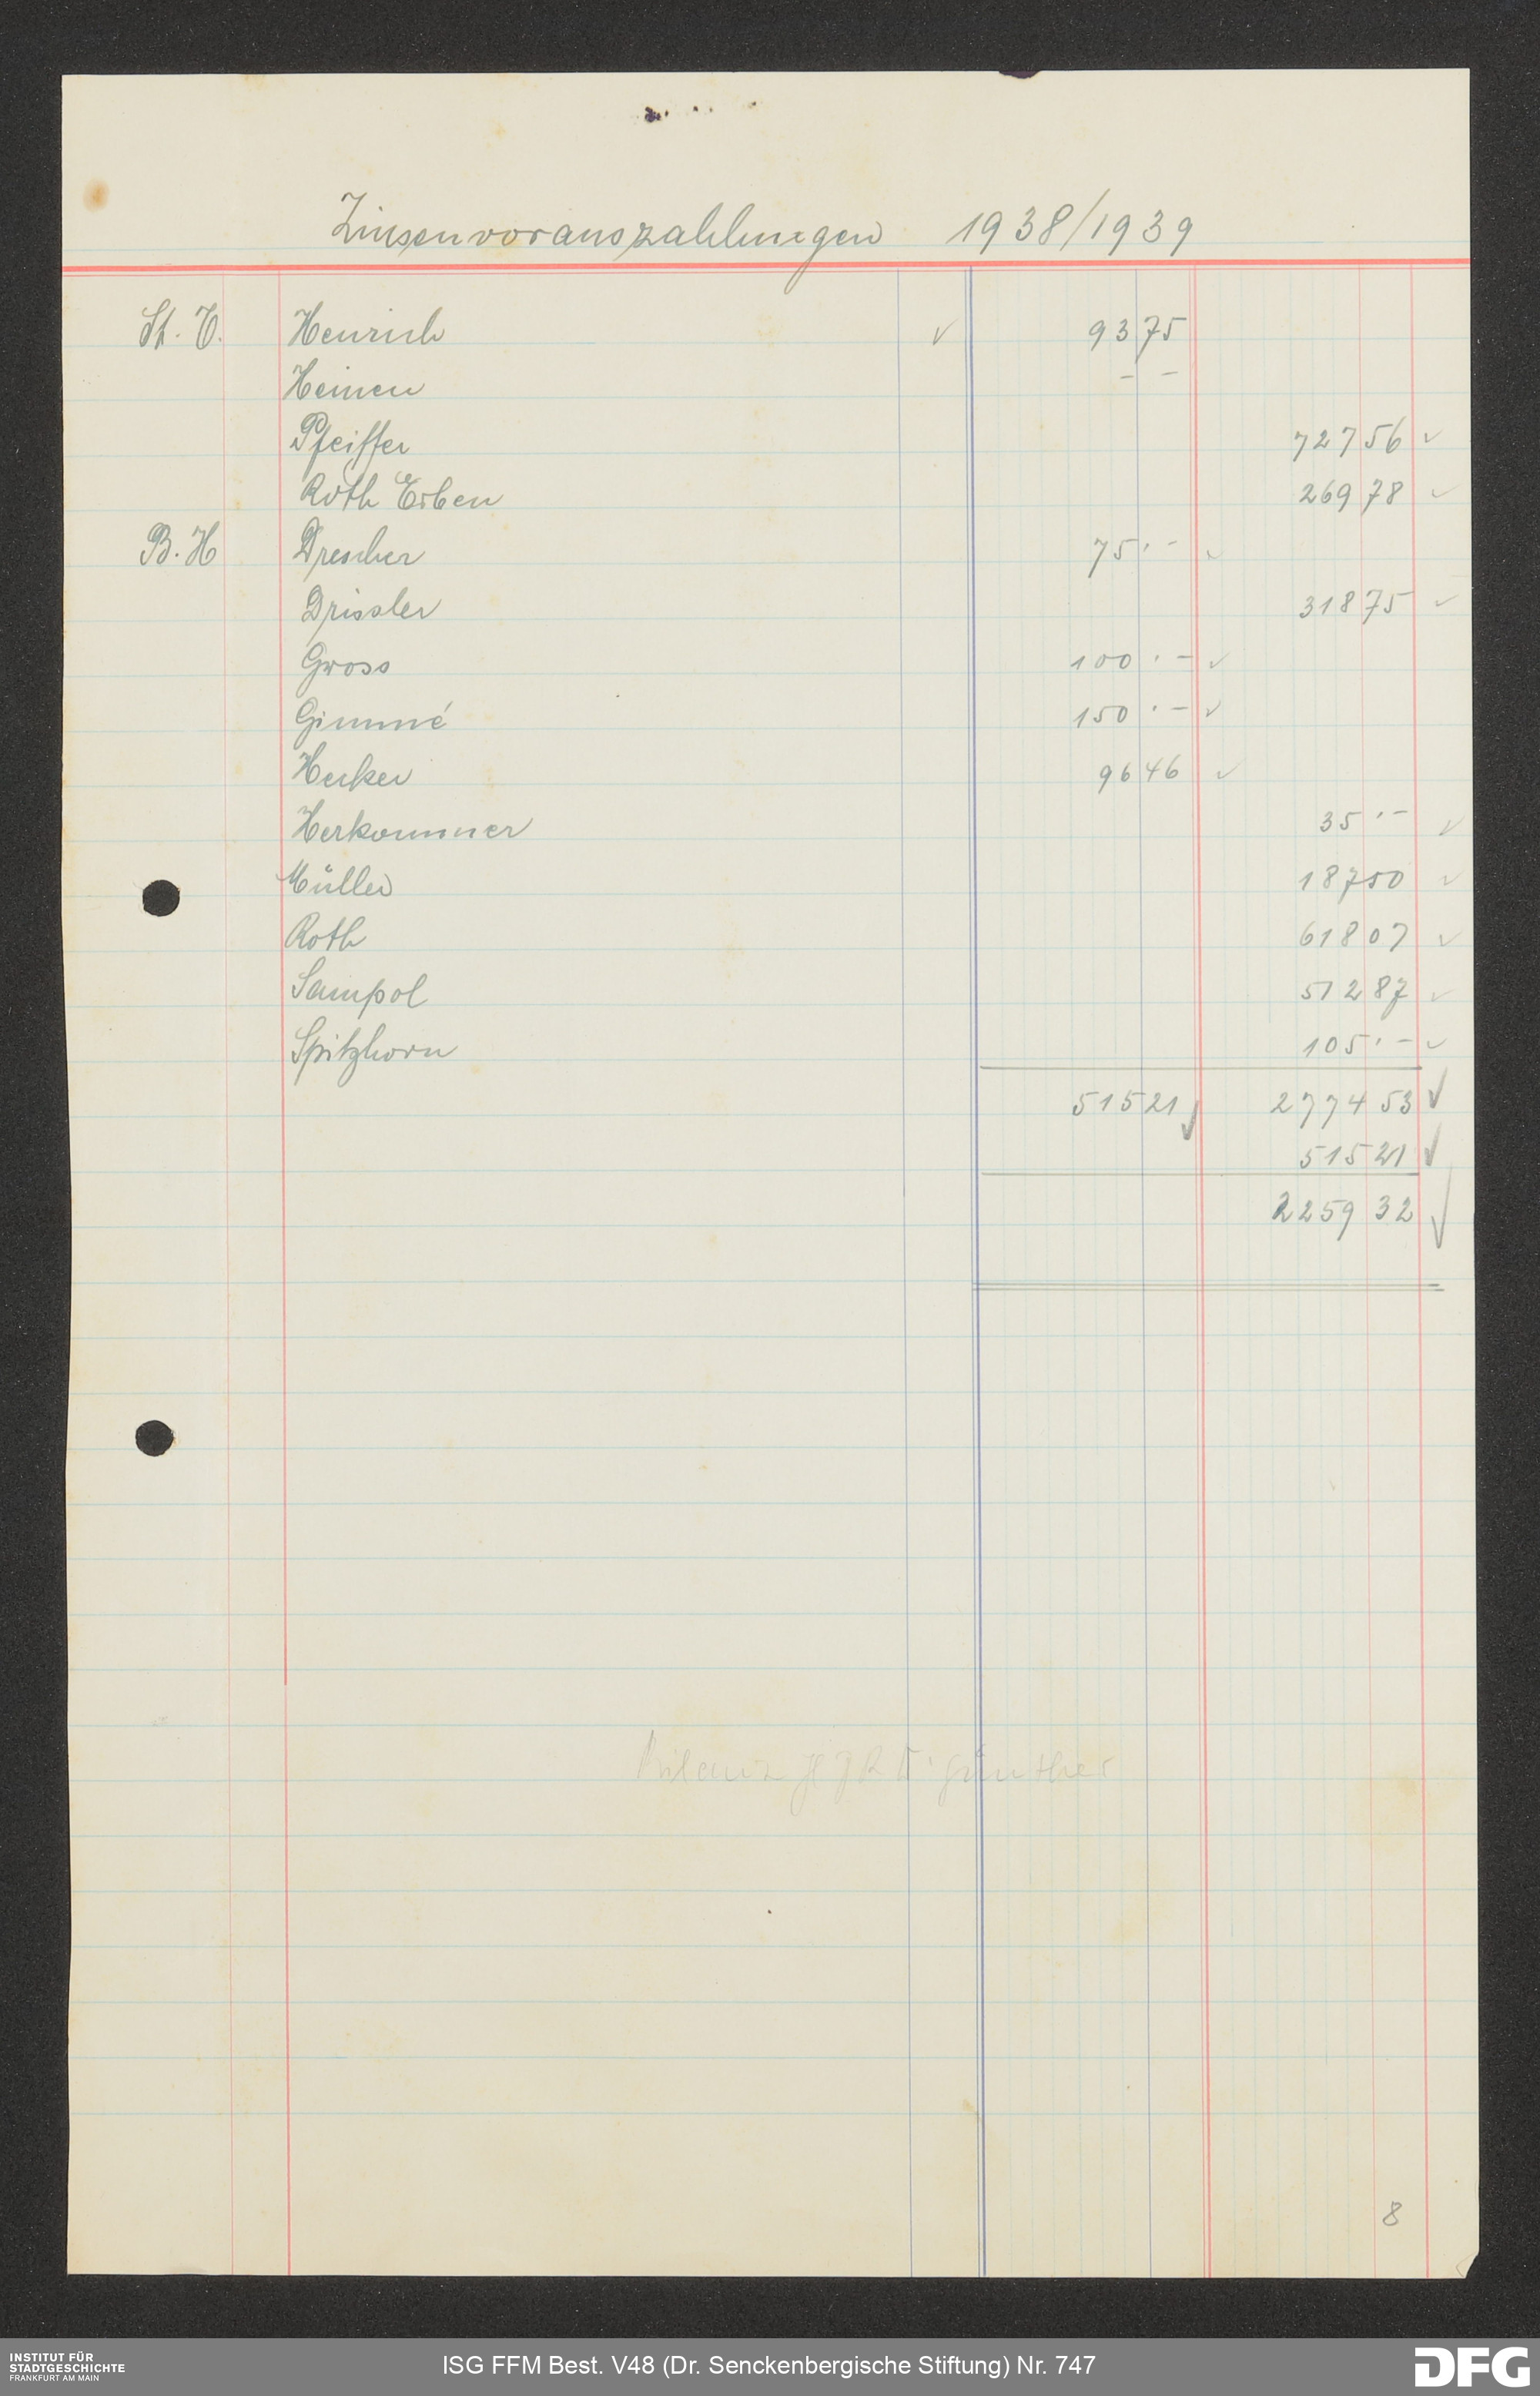 Zinsenvorauszahlungen 1938/1939
St. V. Henrich ✓ 93 75
Heinen – –
Pfeiffer 727 56 ✓
Roth Erben 269 78 ✓
B. H Drescher 75 . – ✓
Drissler 318 75 ✓
Gross 100 . – ✓
Gimmé 150 . – ✓
Herker 96 46 ✓
Herkommer 35 . – ✓
Müller 187 50 ✓
Roth 618 07 ✓
Sampol 512 87 ✓
Spitzhorn 105 . – ✓
515 21 ✓ 2774 53 ✓
515 21 ✓
2259 32 ✓
Günther
8
INSTITUT FÜR
STADTGESCHICHTE
FRANKFURT AM MAIN
ISG FFM Best. V48 (Dr. Senckenbergische Stiftung) Nr. 747
DFG